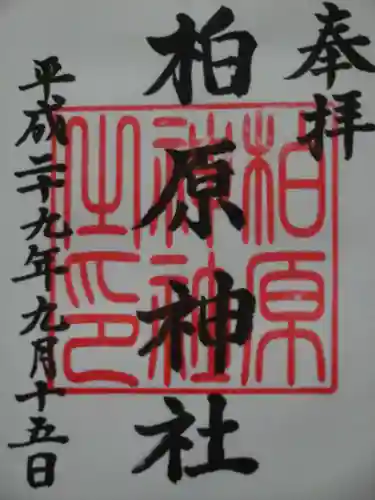 奉拝
柏原神社
平成二十九年九月十五日
柏原
神社
之印